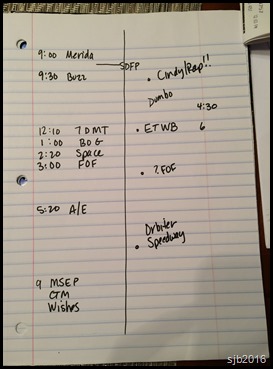 9:00 Merida
SDFP
9:30 Buzz
• Cindy/Rap!!
Dumbo
4:30
12:10 7DMT
• ETWB 6
1:00 BOG
2:20 Space
3:00 FOF
• ? FOF
5:20 A/E
Orbiter
• Speedway
9 MSEP
CTM
Wishes
sjb2016